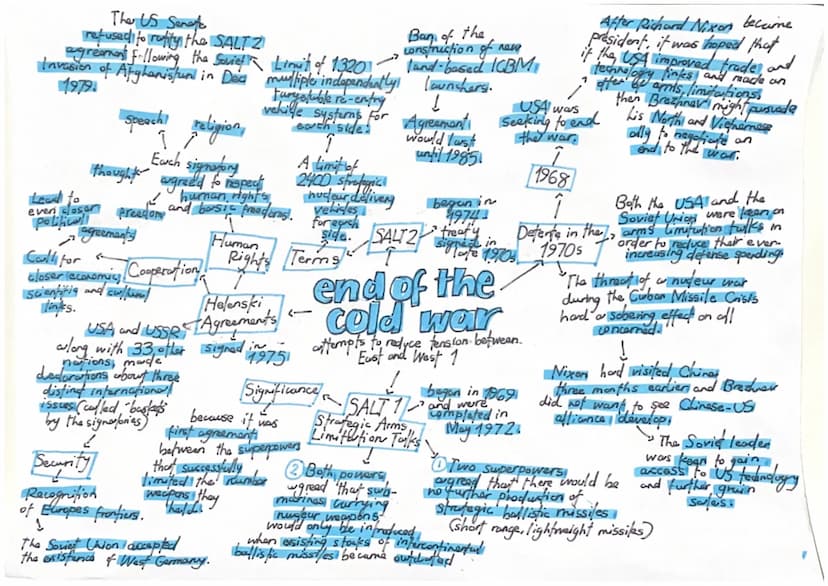 The US Senate
refused to ratify the SALT 2
agreement following the Soviet
Invasion of Afghanistan in Dec
1979.
Limit of 1320
multiple independently
targetable re-entry
vehicle systems for
each side.
Ban of the
construction of new
land-based ICBM
launchers.
Agreement
would last
until 1985.
After Richard Nixon became
president, it was hoped that
if the USA improved trade and
technology links and made an
offer of arms limitations,
then Brezhnev might persuade
his North and
ally to negotiate an
end to the war.
USA was
seeking to end
the war.
1968
speech
religion
thought
Each signatory
agreed to respect
human rights
freedom and basic freedoms.
A limit of
2400 strategic
nuclear delivery
vehicles
for each
side.
began in
1974.
treaty
signed in
late 1970s
Detente in the
1970s
Both the USA and the
Soviet Union were keen on
arms limitation talks in
order to reduce their ever-
increasing defense spending
The threat of a nuclear war
during the Cuban Missile Crisis
had a sobering effect on all
concerned.
Nixon had visited China
three months earlier and
did not want to see Chinese-US
alliance develop.
The Soviet leader
was keen to gain
access to US technology
and further grain
sales.
Lead to
even closer
political
agreements
Calls for
closer economic,
scientific and cultural
links.
Cooperation
Human
Rights
Terms
SALT 2
Helenski
Agreements
signed in
1975
end of the
cold war
attempts to reduce tension between
East and West 1
USA and USSR
along with 33 other
nations, made
declarations about three
distinct international
issues (called 'baskets'
by the signatories)
Security
Recognition
of Europes frontiers.
The Soviet Union accepted
the existence of West Germany.
Significance
because it was
first agreement
between the superpowers
that successfully
limited the number
weapons they
held.
SALT 1
Strategic Arms
Limitation Talks
began in 1969
and were
completed in
May 1972.
② Both powers
agreed that sub-
marines carrying
nuclear weapons
would only be introduced
when existing stocks of intercontinental
ballistic missiles became outdated
① Two superpowers
agreed that there would be
no further production of
strategic ballistic missiles
(short range, lightweight missiles)